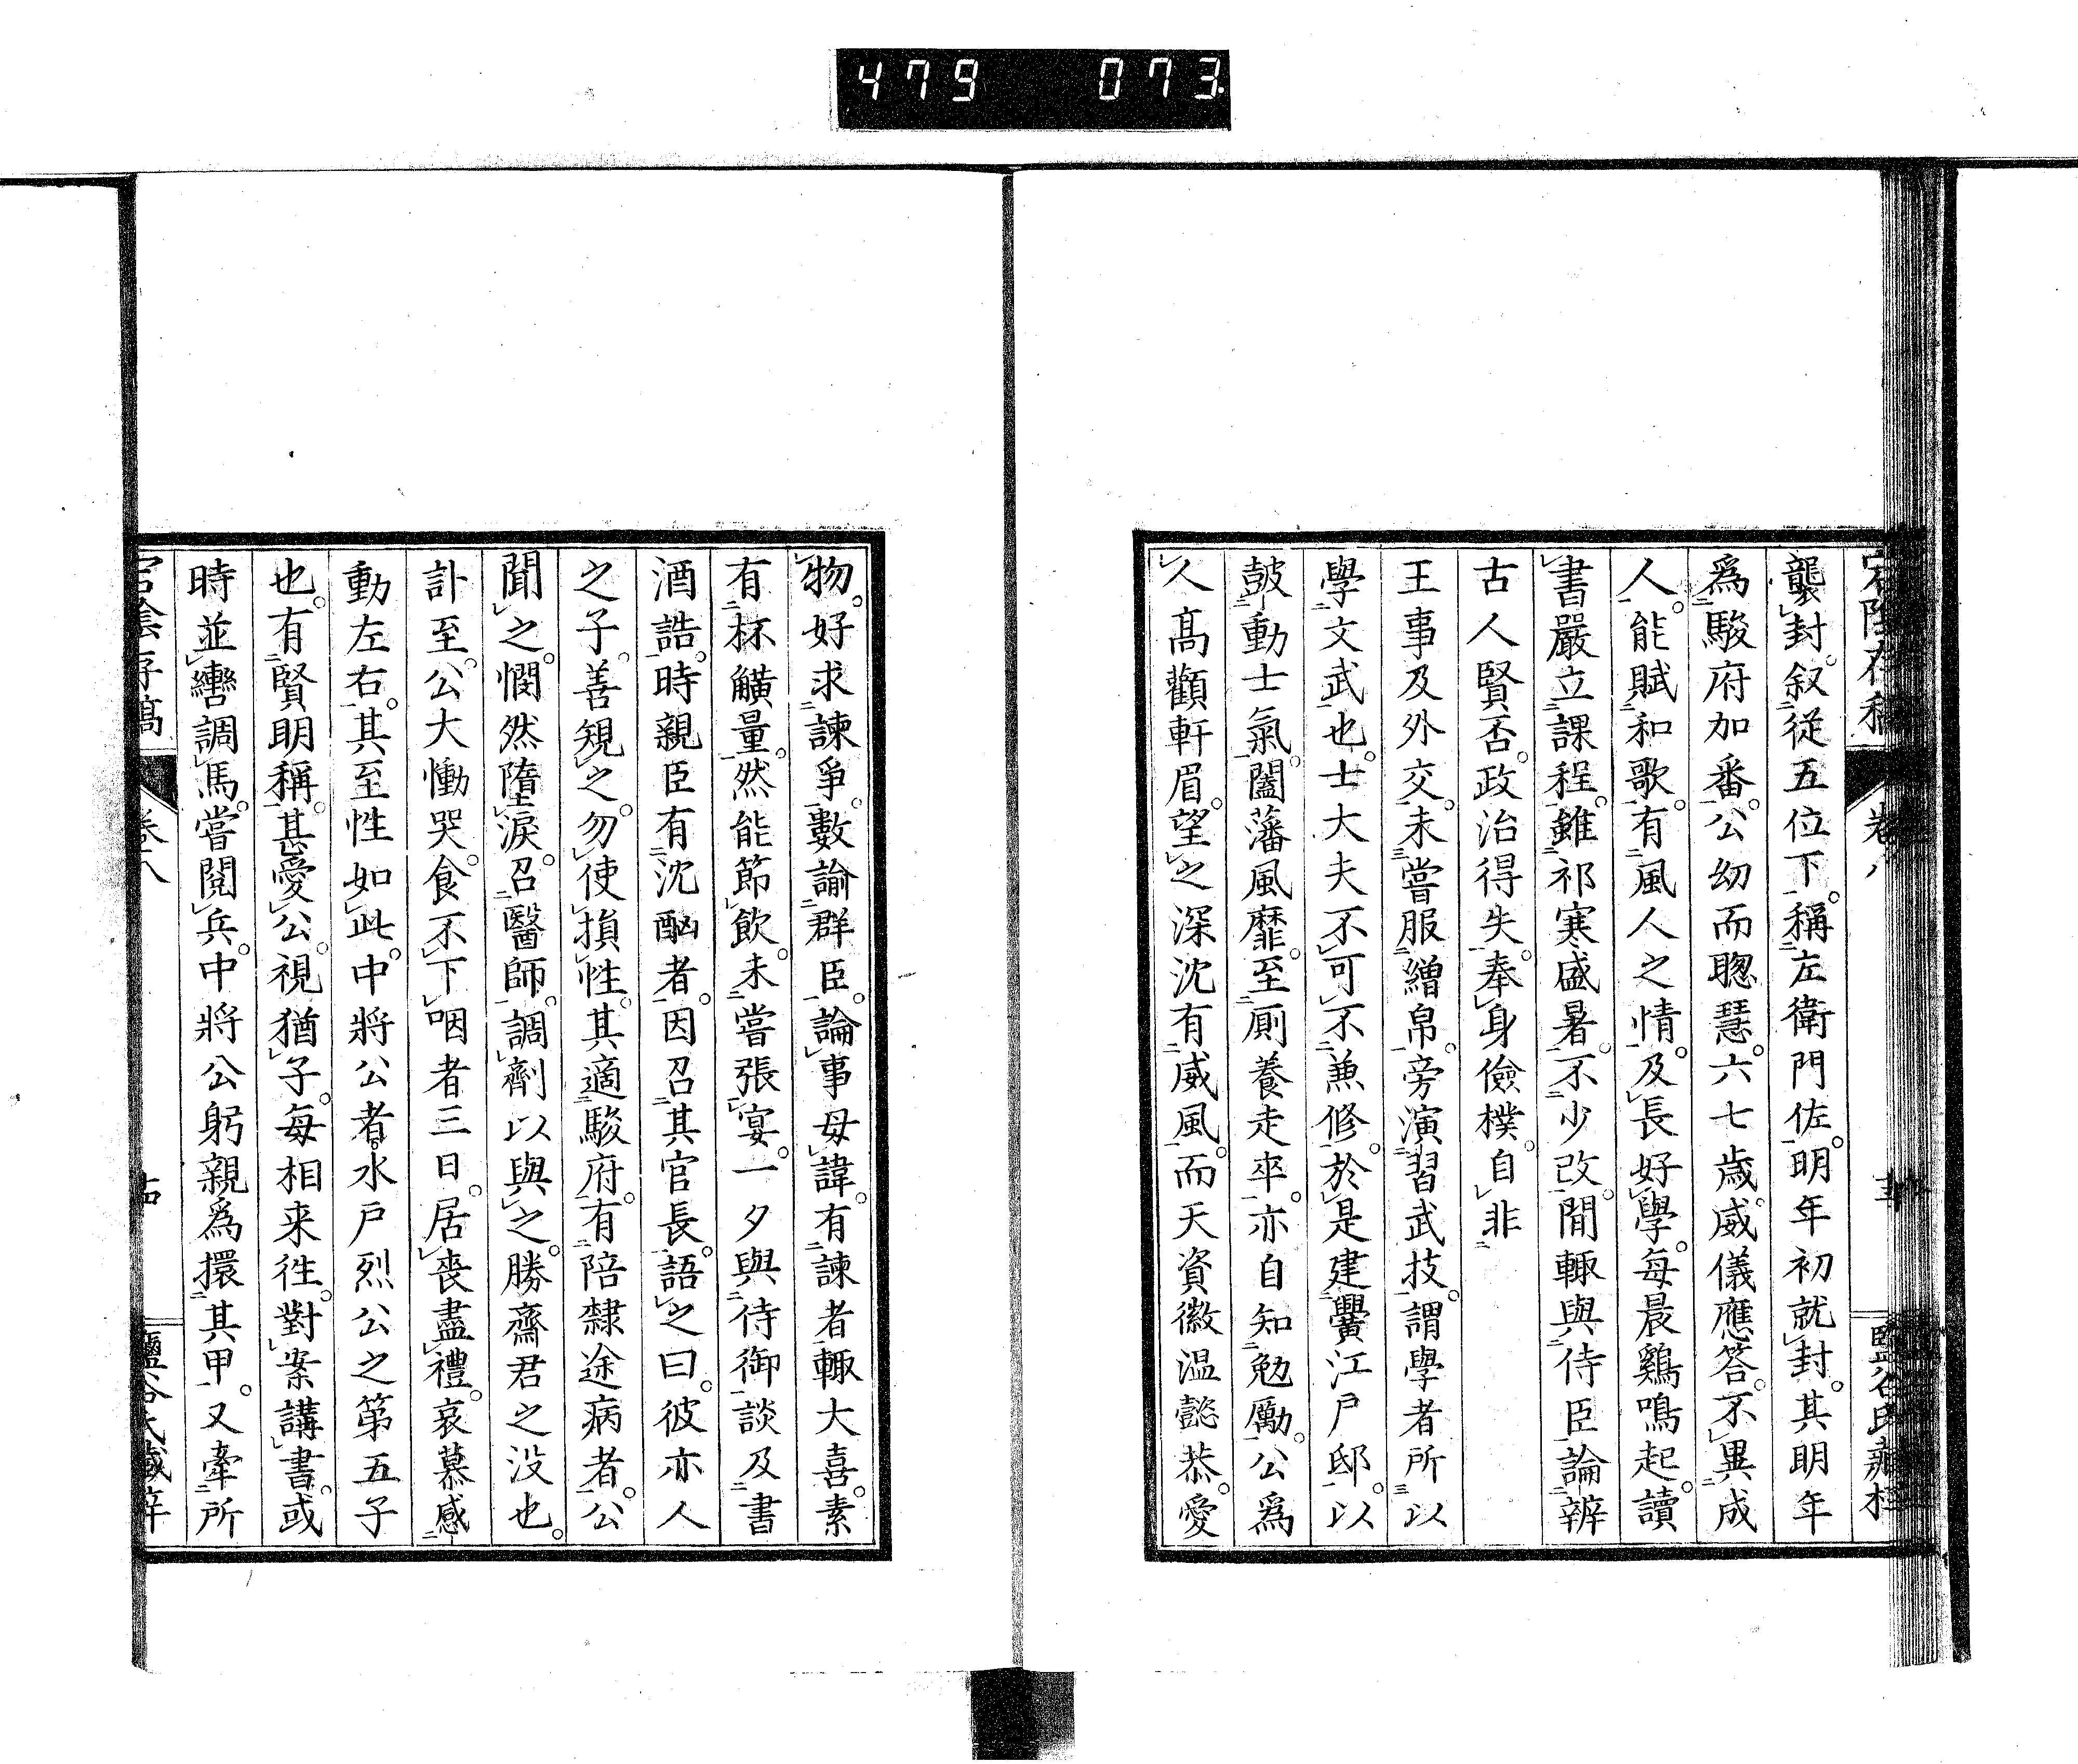 479 073
襲封。叙從五位下。稱左衛門佐。明年初就封。其明年
爲駿府加番。公幼而聰慧。六七歳。威儀應答。不異成
人。能賦和歌。有風人之情。及長好學。每晨鷄鳴起。讀
書嚴立課程。雖祁寒盛暑。不少改。閒輙與侍臣論辨
古人賢否。政治得失。奉身儉樸。自非
王事及外交。未嘗服繒帛。旁演習武技。謂學者所以
學文武也。士大夫不可不兼修。於是建黌江戸邸。以
鼓動士氣。闔藩風靡。至厠養走卒。亦自知勉勵。公爲
人高顴軒眉。望之深沈有威風。而天資徽温懿恭。愛
物。好求諫爭。數諭群臣。論事毋諱。有諫者輙大喜。素
有杯觵量。然能節飲。未嘗張宴。一夕與侍御談及書
酒誥。時親臣有沈酗者。因召其官長。語之曰。彼亦人
之子。善規之。勿使損性。其適駿府。有陪隸途病者。公
聞之。憫然墮淚。召醫師。調劑以與之。勝齋君之没也。
訃至。公大慟哭。食不下咽者三日。居喪盡禮。哀慕感
動左右。其至性如此。中將公者。水戸烈公之第五子
也。有賢明稱。甚愛公。視猶子。每相来往。對案講書。或
時並轡調馬。嘗閲兵。中將公躬親爲擐其甲。又牽所
卷八